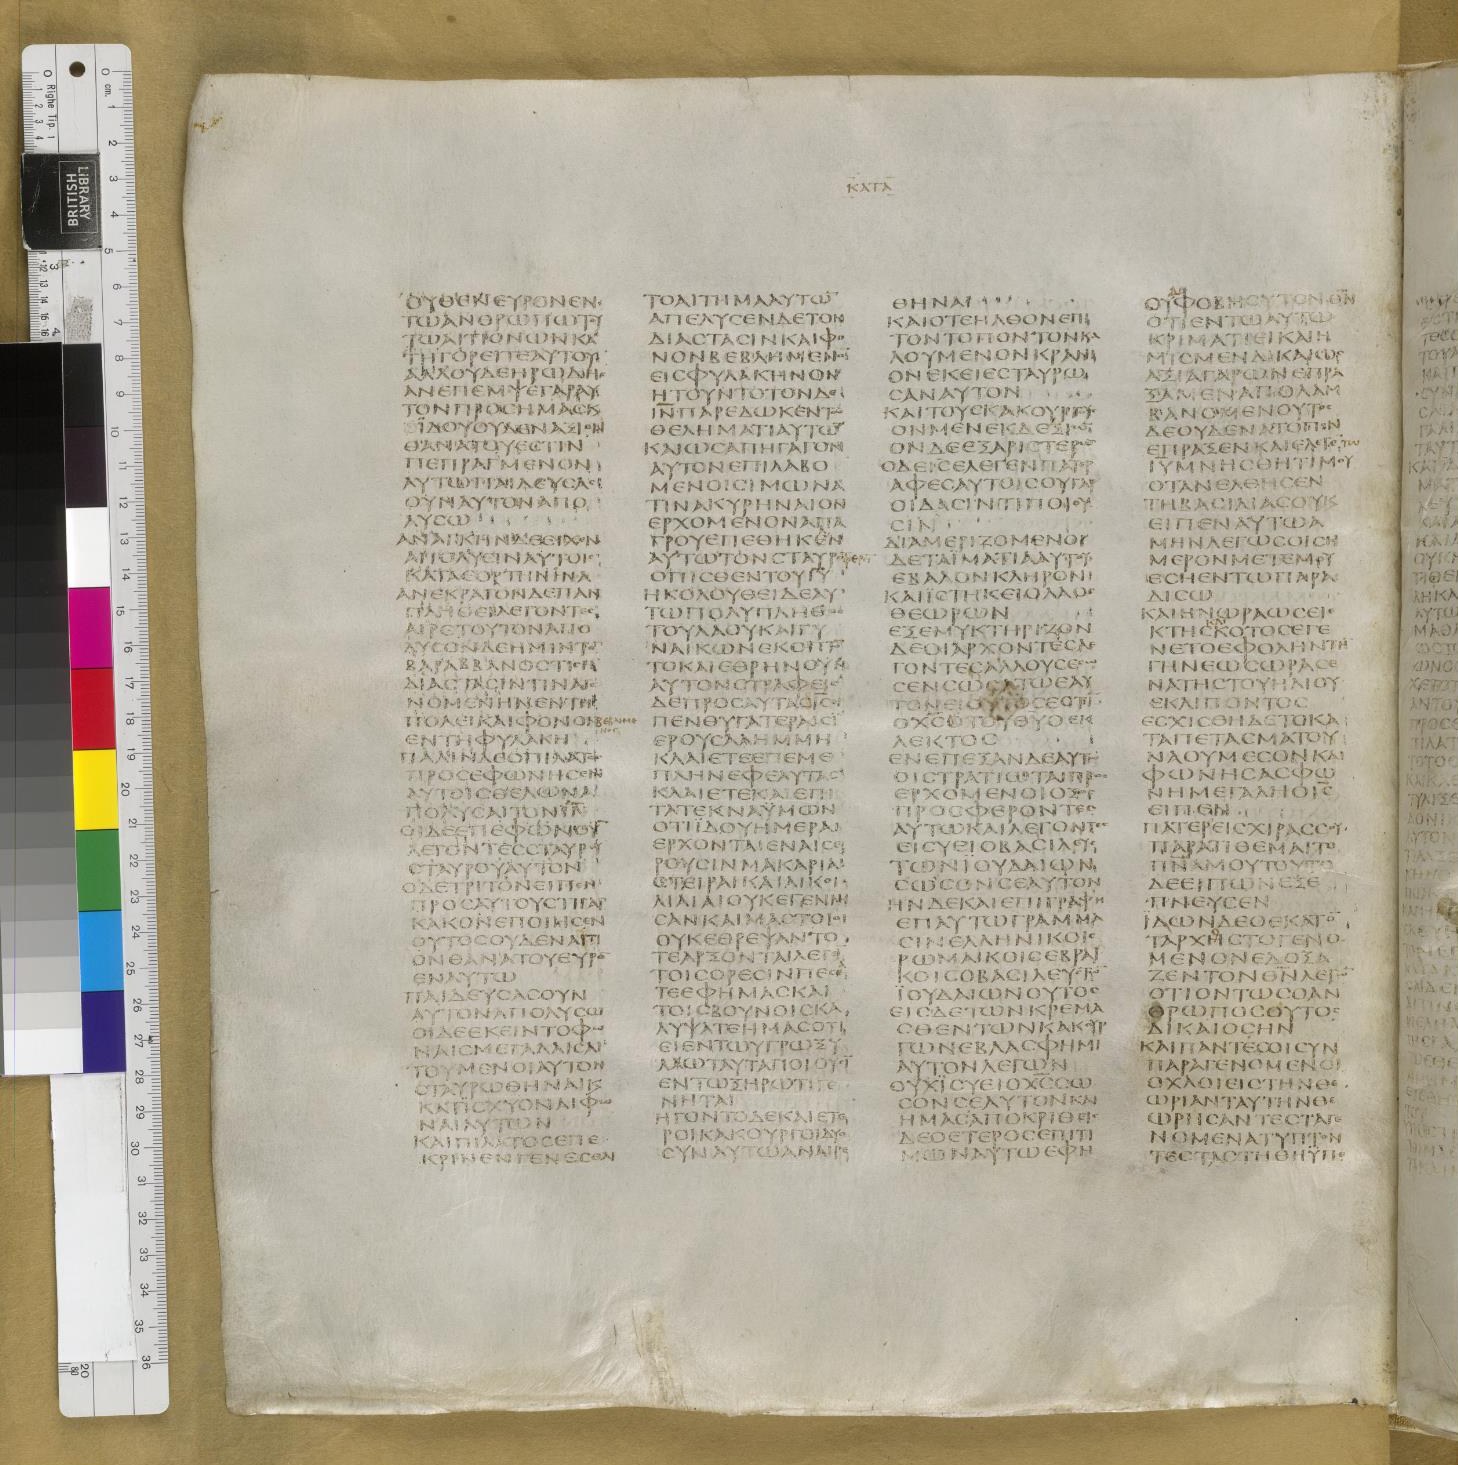 ΚΑΤΑ
ΟΥΘΕΝ ΕΥΡΟΝ ΕΝ
ΤΩ ΑΝΘΡΩΠΩ ΤΟΥ
ΤΩ ΑΙΤΙΟΝ ΩΝ ΚΑ
ΑΛΛ ΟΥΔΕ ΗΡΩΔΗ
ΑΝΕΠΕΜΨΕ ΓΑΡ ΑΥ
ΤΟΝ ΠΡΟΣ ΗΜΑΣ Κ
ΪΔΟΥ ΟΥΔΕΝ ΑΞΙΟΝ
ΘΑΝΑΤΟΥ ΕΣΤΙΝ
ΠΕΠΡΑΓΜΕΝΟΝ
ΑΥΤΩ ΠΑΙΔΕΥΣΑΣ
ΟΥΝ ΑΥΤΟΝ ΑΠΟ
ΛΥΣΩ
ΑΝΑΓΚΗΝ ΔΕ ΕΙΧΕΝ
ΑΠΟΛΥΕΙΝ ΑΥΤΟΙΣ
ΚΑΤΑ ΕΟΡΤΗΝ ΕΝΑ
ΑΝΕΚΡΑΓΟΝ ΔΕ ΠΑΝ
ΠΛΗΘΕΙ ΛΕΓΟΝΤΕΣ
ΑΙΡΕ ΤΟΥΤΟΝ ΑΠΟ
ΛΥΣΟΝ ΔΕ ΗΜΙΝ ΤΟΝ
ΒΑΡΑΒΒΑΝ ΟΣΤΙΣ ΗΝ
ΔΙΑ ΣΤΑΣΙΝ ΤΙΝΑ ΓΕ
ΝΟΜΕΝΗΝ ΕΝ ΤΗ
ΠΟΛΕΙ ΚΑΙ ΦΟΝΟΝ
ΒΕΒΛΗΜΕ
ΝΟΣ
ΕΝ ΤΗ ΦΥΛΑΚΗ
ΠΑΛΙΝ ΔΕ Ο ΠΙΛΑΤΟΣ
ΠΡΟΣΕΦΩΝΗΣΕΝ
ΑΥΤΟΙΣ ΘΕΛΩΝ Α
ΠΟΛΥΣΑΙ ΤΟΝ ΙΝ
ΟΙ ΔΕ ΕΠΕΦΩΝΟΥΝ
ΛΕΓΟΝΤΕΣ ΣΤΑΥΡΟΥ
ΣΤΑΥΡΟΥ ΑΥΤΟΝ
Ο ΔΕ ΤΡΙΤΟΝ ΕΙΠΕΝ
ΠΡΟΣ ΑΥΤΟΥΣ ΤΙ ΓΑΡ
ΚΑΚΟΝ ΕΠΟΙΗΣΕΝ
ΟΥΤΟΣ ΟΥΔΕΝ ΑΙΤΙ
ΟΝ ΘΑΝΑΤΟΥ ΕΥΡΟΝ
ΕΝ ΑΥΤΩ
ΠΑΙΔΕΥΣΑΣ ΟΥΝ
ΑΥΤΟΝ ΑΠΟΛΥΣΩ
ΟΙ ΔΕ ΕΠΕΚΕΙΝΤΟ ΦΩ
ΝΑΙΣ ΜΕΓΑΛΑΙΣ ΑΙ
ΤΟΥΜΕΝΟΙ ΑΥΤΟΝ
ΣΤΑΥΡΩΘΗΝΑΙ Κ
ΚΑΤΙΣΧΥΟΝ ΑΙ ΦΩ
ΝΑΙ ΑΥΤΩΝ
ΚΑΙ ΠΙΛΑΤΟΣ ΕΠΕ
ΚΡΙΝΕΝ ΓΕΝΕΣΘΑΙ
ΤΟ ΑΙΤΗΜΑ ΑΥΤΩ
ΑΠΕΛΥΣΕΝ ΔΕ ΤΟΝ
ΔΙΑ ΣΤΑΣΙΝ ΚΑΙ ΦΟ
ΝΟΝ ΒΕΒΛΗΜΕΝΟΝ
ΕΙΣ ΦΥΛΑΚΗΝ ΟΝ
ΗΤΟΥΝΤΟ ΤΟΝ ΔΕ
ΙΝ ΠΑΡΕΔΩΚΕΝ ΤΩ
ΘΕΛΗΜΑΤΙ ΑΥΤΩ
ΚΑΙ ΩΣ ΑΠΗΓΑΓΟΝ
ΑΥΤΟΝ ΕΠΙΛΑΒΟ
ΜΕΝΟΙ ΣΙΜΩΝΑ
ΤΙΝΑ ΚΥΡΗΝΑΙΟΝ
ΕΡΧΟΜΕΝΟΝ ΑΠ Α
ΓΡΟΥ ΕΠΕΘΗΚΑΝ
ΑΥΤΩ ΤΟΝ ΣΤΑΥΡΟΝ
ΦΕΡΕΙΝ
ΟΠΙΣΘΕΝ ΤΟΥ ΙΥ
ΗΚΟΛΟΥΘΕΙ ΔΕ ΑΥ
ΤΩ ΠΟΛΥ ΠΛΗΘΟΣ
ΤΟΥ ΛΑΟΥ ΚΑΙ ΓΥ
ΝΑΙΚΩΝ ΕΚΟΠΤΟ
ΤΟ ΚΑΙ ΕΘΡΗΝΟΥΝ
ΑΥΤΟΝ ΣΤΡΑΦΕΙΣ
ΔΕ ΠΡΟΣ ΑΥΤΑΣ ΙΣ ΕΙ
ΠΕΝ ΘΥΓΑΤΕΡΑΙΣ Ι
ΕΡΟΥΣΑΛΗΜ ΜΗ
ΚΛΑΙΕΤΕ ΕΠ ΕΜΕ
ΠΛΗΝ ΕΦ ΕΑΥΤΑΣ
ΚΛΑΙΕΤΕ ΚΑΙ ΕΠΙ
ΤΑ ΤΕΚΝΑ ΫΜΩΝ
ΟΤΙ ΪΔΟΥ ΗΜΕΡΑΙ
ΕΡΧΟΝΤΑΙ ΕΝ ΑΙΣ Ε
ΡΟΥΣΙΝ ΜΑΚΑΡΙΑΙ
ΑΙ ΣΤΕΙΡΑΙ ΚΑΙ ΑΙ ΚΟΙ
ΛΙΑΙ ΑΙ ΟΥΚ ΕΓΕΝΝΗ
ΣΑΝ ΚΑΙ ΜΑΣΤΟΙ ΟΙ
ΟΥΚ ΕΘΡΕΨΑΝ ΤΟ
ΤΕ ΑΡΞΟΝΤΑΙ ΛΕΓΙ
ΤΟΙΣ ΟΡΕΣΙΝ ΠΕΣΕ
ΤΕ ΕΦ ΗΜΑΣ ΚΑΙ
ΤΟΙΣ ΒΟΥΝΟΙΣ ΚΑ
ΛΥΨΑΤΕ ΗΜΑΣ ΟΤΙ
ΕΙ ΕΝ ΤΩ ΥΓΡΩ ΞΥ
ΛΩ ΤΑΥΤΑ ΠΟΙΟΥΣΙΝ
ΕΝ ΤΩ ΞΗΡΩ ΤΙ ΓΕ
ΝΗΤΑΙ
ΗΓΟΝΤΟ ΔΕ ΚΑΙ ΕΤΕ
ΡΟΙ ΚΑΚΟΥΡΓΟΙ ΔΥΟ
ΣΥΝ ΑΥΤΩ ΑΝΑΙΡΕ
ΘΗΝΑΙ
ΚΑΙ ΟΤΕ ΗΛΘΟΝ ΕΠΙ
ΤΟΝ ΤΟΠΟΝ ΤΟΝ ΚΑ
ΛΟΥΜΕΝΟΝ ΚΡΑΝΙ
ΟΝ ΕΚΕΙ ΕΣΤΑΥΡΩ
ΣΑΝ ΑΥΤΟΝ
ΚΑΙ ΤΟΥΣ ΚΑΚΟΥΡΓΟΥΣ
ΟΝ ΜΕΝ ΕΚ ΔΕΞΙΩ
ΟΝ ΔΕ ΕΞ ΑΡΙΣΤΕΡΩ
Ο ΔΕ ΙΣ ΕΛΕΓΕΝ ΠΑΤΕΡ
ΑΦΕΣ ΑΥΤΟΙΣ ΟΥ ΓΑΡ
ΟΙΔΑΣΙΝ ΤΙ ΠΟΙΟΥ
ΣΙΝ
ΔΙΑΜΕΡΙΖΟΜΕΝΟΙ
ΔΕ ΤΑ ΪΜΑΤΙΑ ΑΥΤΟΥ
ΕΒΑΛΟΝ ΚΛΗΡΟΝ
ΚΑΙ ΪΣΤΗΚΕΙ Ο ΛΑΟΣ
ΘΕΩΡΩΝ
ΕΞΕΜΥΚΤΗΡΙΖΟΝ
ΔΕ ΟΙ ΑΡΧΟΝΤΕΣ ΛΕ
ΓΟΝΤΕΣ ΑΛΛΟΥΣ Ε
ΣΩΣΕΝ ΣΩΣΑΤΩ ΕΑΥ
ΤΟΝ ΕΙ ΟΥΤΟΣ ΕΣΤΙ
Ο ΧΣ Ο ΤΟΥ ΘΥ Ο ΕΚ
ΛΕΚΤΟΣ
ΕΝΕΠΕΞΑΝ ΔΕ ΑΥΤΩ
ΟΙ ΣΤΡΑΤΙΩΤΑΙ ΠΡΟΣ
ΕΡΧΟΜΕΝΟΙ ΟΞΟΣ
ΠΡΟΣΦΕΡΟΝΤΕΣ
ΑΥΤΩ ΚΑΙ ΛΕΓΟΝΤΕΣ
ΕΙ ΣΥ ΕΙ Ο ΒΑΣΙΛΕΥΣ
ΤΩΝ ΪΟΥΔΑΙΩΝ
ΣΩΣΟΝ ΣΕΑΥΤΟΝ
ΗΝ ΔΕ ΚΑΙ ΕΠΙΓΡΑΦΗ
ΕΠ ΑΥΤΩ ΓΡΑΜΜΑ
ΣΙΝ ΕΛΛΗΝΙΚΟΙΣ
ΡΩΜΑΙΚΟΙΣ ΕΒΡΑΙ
ΚΟΙΣ Ο ΒΑΣΙΛΕΥΣ ΤΩ
ΪΟΥΔΑΙΩΝ ΟΥΤΟΣ
ΕΙΣ ΔΕ ΤΩΝ ΚΡΕΜΑ
ΣΘΕΝΤΩΝ ΚΑΚΟΥΡ
ΓΩΝ ΕΒΛΑΣΦΗΜΙ
ΑΥΤΟΝ ΛΕΓΩΝ
ΟΥΧΪ ΣΥ ΕΙ Ο ΧΣ ΣΩ
ΣΟΝ ΣΕΑΥΤΟΝ ΚΑΙ
ΗΜΑΣ ΑΠΟΚΡΙΘΕΙΣ
ΔΕ Ο ΕΤΕΡΟΣ ΕΠΙΤΙ
ΜΩΝ ΑΥΤΩ ΕΦΗ
ΟΥ ΦΟΒΗ ΣΥ ΤΟΝ ΘΝ
ΟΤΙ ΕΝ ΤΩ ΑΥΤΩ
ΚΡΙΜΑΤΙ ΕΙ ΚΑΙ Η
ΜΙΣ ΜΕΝ ΔΙΚΑΙΩΣ
ΑΞΙΑ ΓΑΡ ΩΝ ΕΠΡΑ
ΞΑΜΕΝ ΑΠΟΛΑΜ
ΒΑΝΟΜΕΝ ΟΥΤΟΣ
ΔΕ ΟΥΔΕΝ ΑΤΟΠΟΝ
ΕΠΡΑΞΕΝ ΚΑΙ ΕΛΕΓΕΝ ΤΩ
ΙΥ ΜΝΗΣΘΗΤΙ ΜΟΥ
ΟΤΑΝ ΕΛΘΗΣ ΕΝ
ΤΗ ΒΑΣΙΛΙΑ ΣΟΥ Κ
ΕΙΠΕΝ ΑΥΤΩ Α
ΜΗΝ ΛΕΓΩ ΣΟΙ ΣΗ
ΜΕΡΟΝ ΜΕΤ ΕΜΟΥ
ΕΣΗ ΕΝ ΤΩ ΠΑΡΑ
ΔΙΣΩ
ΚΑΙ ΗΝ ΩΡΑ ΩΣΕΙ Ε
ΚΤΗ ΚΑΙ ΣΚΟΤΟΣ ΕΓΕ
ΝΕΤΟ ΕΦ ΟΛΗΝ ΤΗ
ΓΗΝ ΕΩΣ ΩΡΑΣ Ε
ΝΑΤΗΣ ΤΟΥ ΗΛΙΟΥ
ΕΚΛΙΠΟΝΤΟΣ
ΕΣΧΙΣΘΗ ΔΕ ΤΟ ΚΑ
ΤΑΠΕΤΑΣΜΑ ΤΟΥ
ΝΑΟΥ ΜΕΣΟΝ ΚΑΙ
ΦΩΝΗΣΑΣ ΦΩ
ΝΗ ΜΕΓΑΛΗ Ο ΙΣ
ΕΙΠΕΝ
ΠΑΤΕΡ ΕΙΣ ΧΙΡΑΣ ΣΟΥ
ΠΑΡΑΤΙΘΕΜΑΙ ΤΟ
ΠΝΑ ΜΟΥ ΤΟΥΤΟ
ΔΕ ΕΙΠΩΝ ΕΞΕ
ΠΝΕΥΣΕΝ
ΪΔΩΝ ΔΕ Ο ΕΚΑΤΟ
ΤΑΡΧΗΣ ΤΟ ΓΕΝΟ
ΜΕΝΟΝ ΕΔΟΞΑ
ΖΕΝ ΤΟΝ ΘΝ ΛΕΓΩ
ΟΤΙ ΟΝΤΩΣ Ο ΑΝ
ΘΡΩΠΟΣ ΟΥΤΟΣ
ΔΙΚΑΙΟΣ ΗΝ
ΚΑΙ ΠΑΝΤΕΣ ΟΙ ΣΥΝ
ΠΑΡΑΓΕΝΟΜΕΝΟΙ
ΟΧΛΟΙ ΕΙΣ ΤΗΝ ΘΕ
ΩΡΙΑΝ ΤΑΥΤΗΝ ΘΕ
ΩΡΗΣΑΝΤΕΣ ΤΑ ΓΕ
ΝΟΜΕΝΑ ΤΥΠΤΟΝ
ΤΕΣ ΤΑ ΣΤΗΘΗ ΫΠΕ